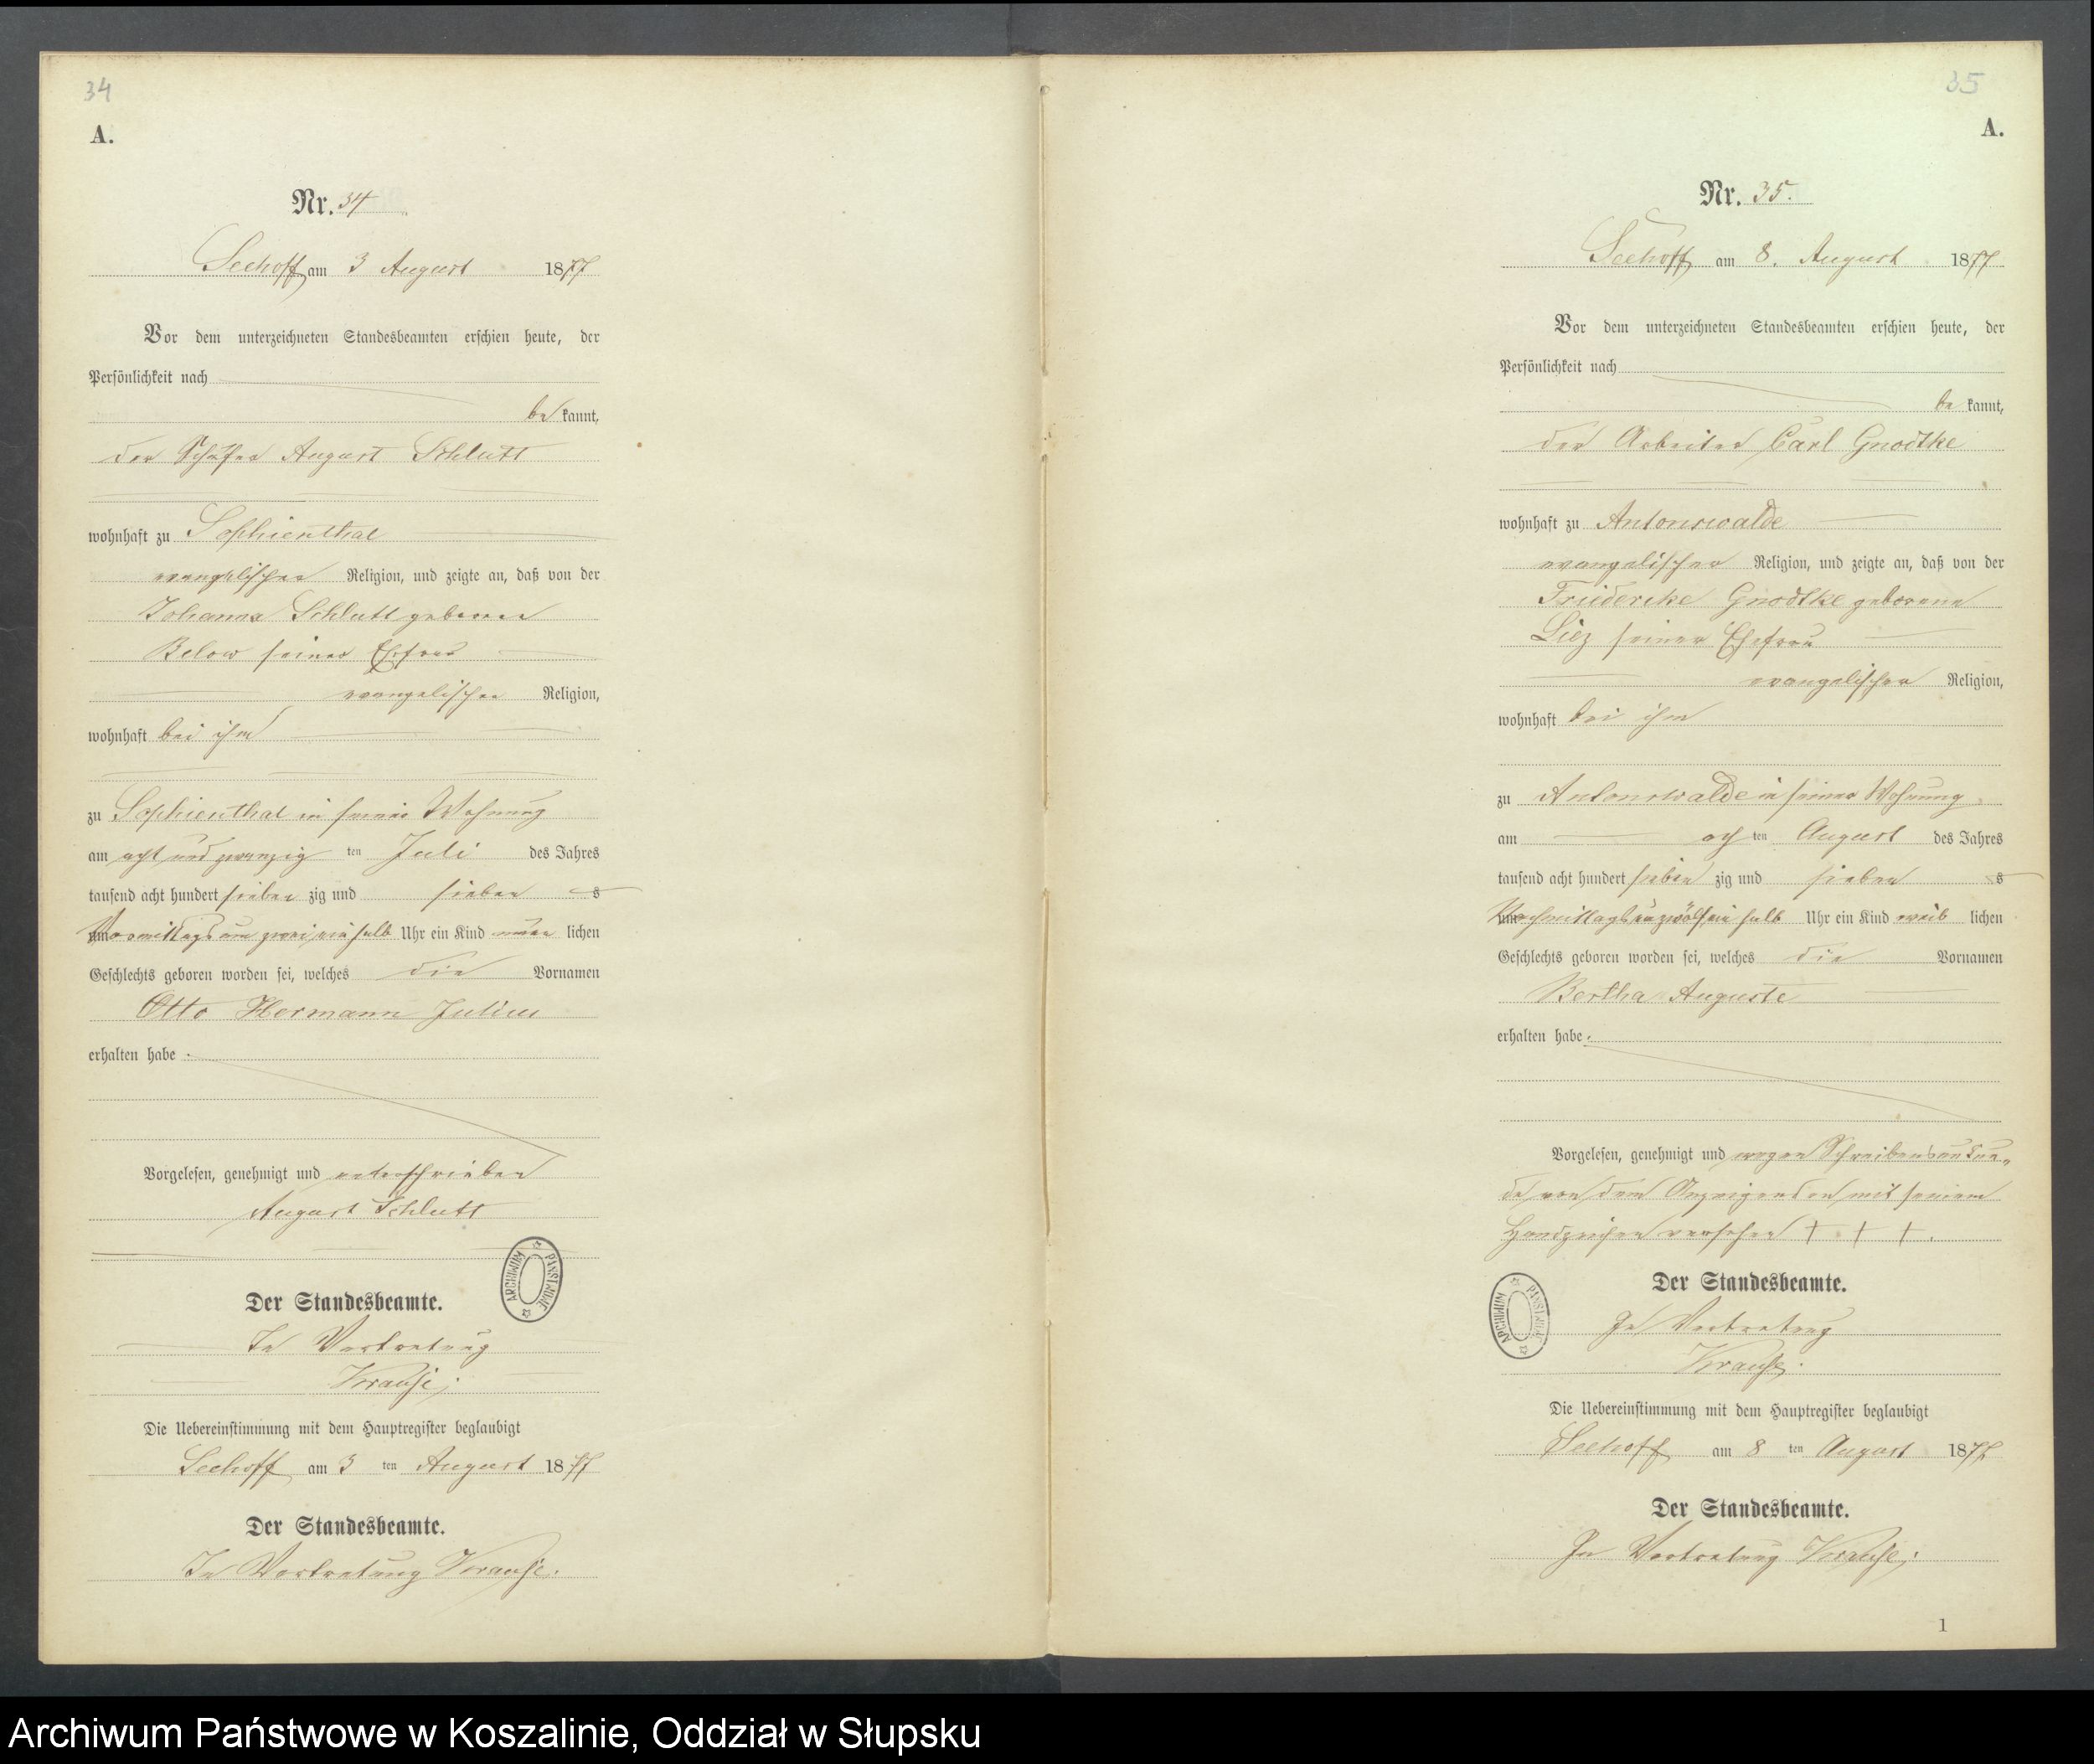 34
A.
Nr. 34
Seehoff am 3 August 1877
Vor dem unterzeichneten Standesbeamten erschien heute, der
Persönlichkeit nach
be kannt,
der Schäfer August Schlutt
wohnhaft zu Sophienthal
evangelischer Religion, und zeigte an, daß von der
Johanna Schlutt geborene
Below seiner Ehefrau
evangelischer Religion,
wohnhaft bei ihm
zu Sophienthal in seiner Wohnung
am acht und zwanzig ten Juli des Jahres
tausend acht hundert sieben zig und sieben s
Vormittags um zwei ein halb Uhr ein Kind männ lichen
Geschlechts geboren worden sei, welches die Vornamen
Otto Hermann Julius
erhalten habe.
Vorgelesen, genehmigt und unterschrieben
August Schlutt
ARCHIWUM PAŃSTWOWE
Der Standesbeamte.
In Vertretung
Krause.
Die Uebereinstimmung mit dem Hauptregister beglaubigt
Seehoff am 3 ten August 1877
Der Standesbeamte.
In Vertretung Krause.
35
A.
Nr. 35.
Seehoff am 8. August 1877
Vor dem unterzeichneten Standesbeamten erschien heute, der
Persönlichkeit nach
be kannt,
der Arbeiter Carl Gnodtke
wohnhaft zu Antonswalde
evangelischer Religion, und zeigte an, daß von der
Friedereke Gnodtke geborene
Liez seiner Ehefrau
evangelischer Religion,
wohnhaft bei ihm
zu Antonswalde in seiner Wohnung
am ach ten August des Jahres
tausend acht hundert sieben zig und sieben s
Nachmittags um zwölf ein halb Uhr ein Kind weib lichen
Geschlechts geboren worden sei, welches die Vornamen
Bertha Auguste
erhalten habe.
Vorgelesen, genehmigt und wegen Schreibensunkun-
de von dem Anzeigenden mit seinem
Handzeichen versehen + + +.
ARCHIWUM PAŃSTWOWE
Der Standesbeamte.
In Vertretung
Krause.
Die Uebereinstimmung mit dem Hauptregister beglaubigt
Seehoff am 8 ten August 1877
Der Standesbeamte.
In Vertretung Krause.
1
Archiwum Państwowe w Koszalinie, Oddział w Słupsku